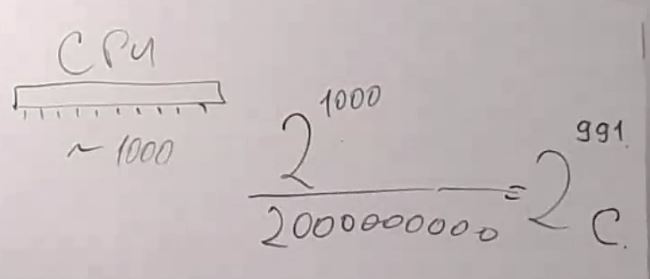 CPU
~ 1000
2^1000 / 2000000000 = 2^991 с.